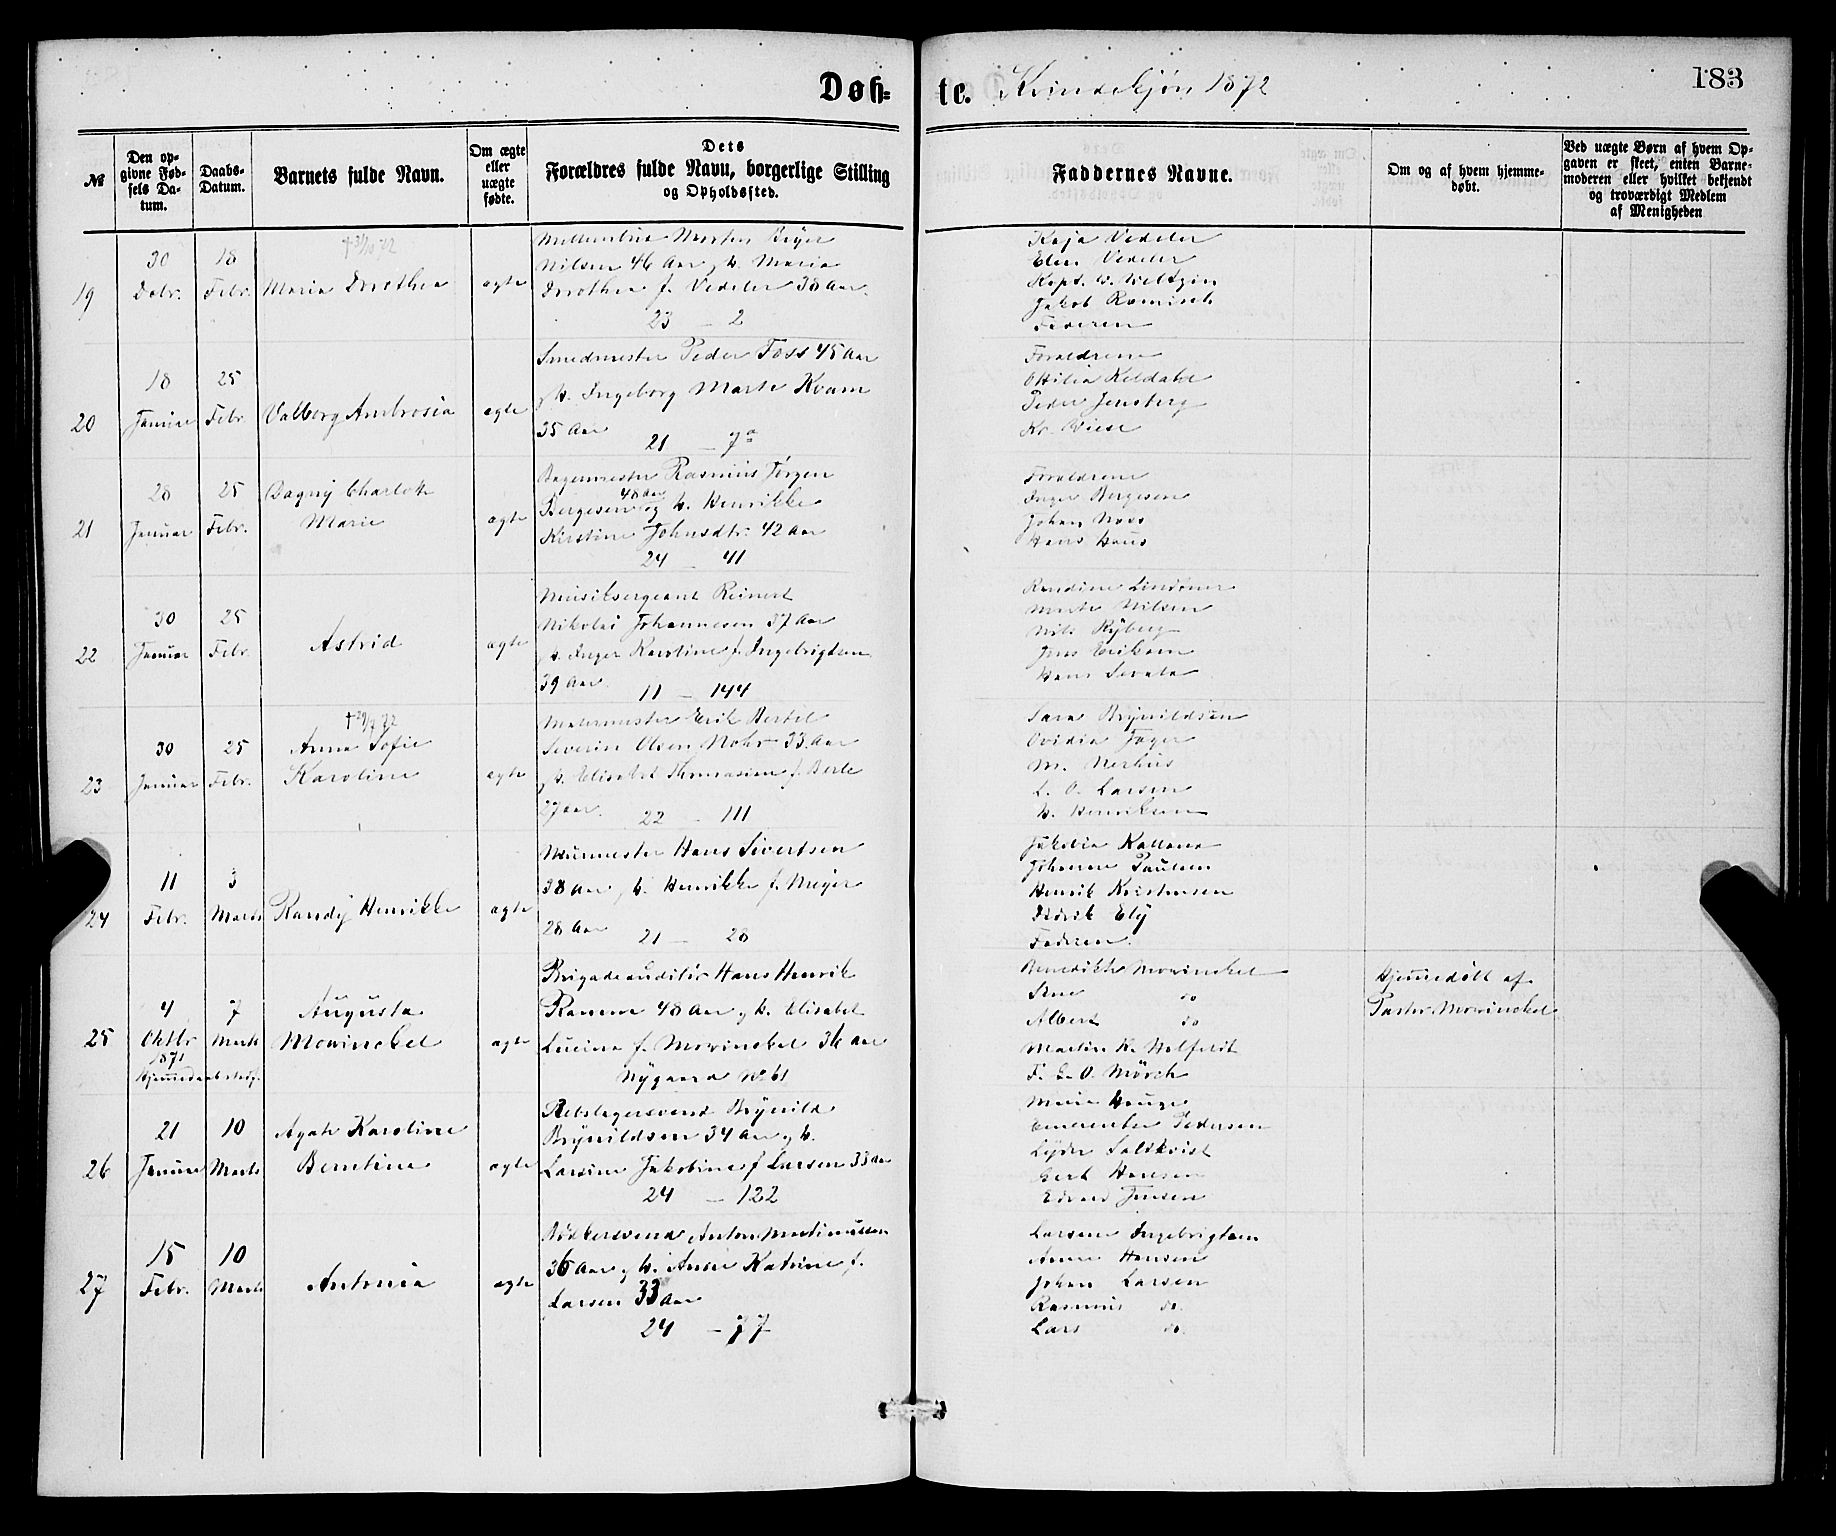 Døb=
te. Kvindekjøn 1872
183
№
Den op-
givne Fød-
sels Da-
tum.
Daabs-
Datum.
Barnets fulde Navn.
Om ægte
eller
uægte
fødte.
Dets
Forældres fulde Navn, borgerlige Stilling
og Opholdssted.
Faddernes Navne.
Om og af hvem hjemme-
døbt.
Ved uægte Børn af hvem Op-
gaven er skeet, enten Barne-
moderen eller hvilket bekjendt
og troværdigt Medlem
af Menigheden
19
30
Debr.
18
Febr.
Maria Dorothea
ægte
Morten Beyer
Nilsen 46 Aar, H. Maria
Dorothea f. Vedeler 38 Aar.
23 – 2
Kaja Vedeler
Elen Vedeler
Kapt. W. Weltzin
Jakob Romisch
Faderen
20
18
Januar
25
Febr.
Valborg Ambrosia
ægte
Smedmester Peder Foss 45 Aar
H. Ingeborg Marte Kvam
35 Aar
21 – 7a
Forældrene
Ottilia Keldahl
Peder Jensberg
Kr. Viese
21
28
Januar
25
Febr.
Dagny Charlotte
Marie
ægte
Bagermester Rasmus Jørgen
Bergesen 48 Aar og H. Henrikke
Kirstine Johnsdtr. 42 Aar
24 – 41
Forældrene
Inger Bergesen
Johan Noss
Hans Haus
22
30
Januar
25
Febr.
Astrid
ægte
Musiksergeant Reinert
Nikolai Johannesen 37 Aar
H. Inger Karoline f. Ingebrigtsen
39 Aar.
11 – 144
Randine Lindøner
Marte Nilsen
Nils Ryberg
Jens Eriksen
Hans
23
30
Januar
25
Febr.
† 29/7 72
Anna Sofie
Karoline
ægte
Malermester Erik Bertel
Severin Olsen Mohr 33 Aar
H. Elisabet Thomasine f. Berle
27 aar.
22 – 111
Sara Brynildsen
Ovidia Fager
M. Nerhus
L. O. Larsen
H. Henriksen
24
11
Febr.
3
Marts
Randy Henrikke
ægte
Murmester Hans Sivertsen
38 Aar, H. Henrikke f. Meyer
28 Aar
21 – 28
Jakobia Kalland
Johanne Paulsen
Henrik Kristensen
Didrik Ely
Faderen.
25
4
Oktbr
1871
7
Marts
Augusta
Mowinckel
ægte
Brigadeauditør Hans Henrik
Ramm 48 Aar, H. Elisabet
Lucina f. Mowinckel 36 Aar
Nygaard No 61
Benedikte Mowinckel
Stine do
Albert do
F. L. O. Mörch
Hjemmedøbt af
Pastor Mowinckel
26
21
Januar
10
Marts
Agate Karoline
Berntine
ægte
Rebslagersvend Brynild
Brynildsen 34 Aar, H.
Larsine Jakobine f. Larsen 33 Aar
24 – 122
Marie Hauge
Emerentse Pedersen
Lyder Saltkvist
Gert Hansen
Edvard Jensen
27
15
Febr.
10
Marts
Antonia
ægte
Bødkersvend Anton Martinussen
36 Aar, H. Anne Katrine f.
Larsen 33 Aar
24 – 77
Larsene Ingebrigtsen
Anne Hansen
Johan Larsen
Rasmus do.
Lars do.